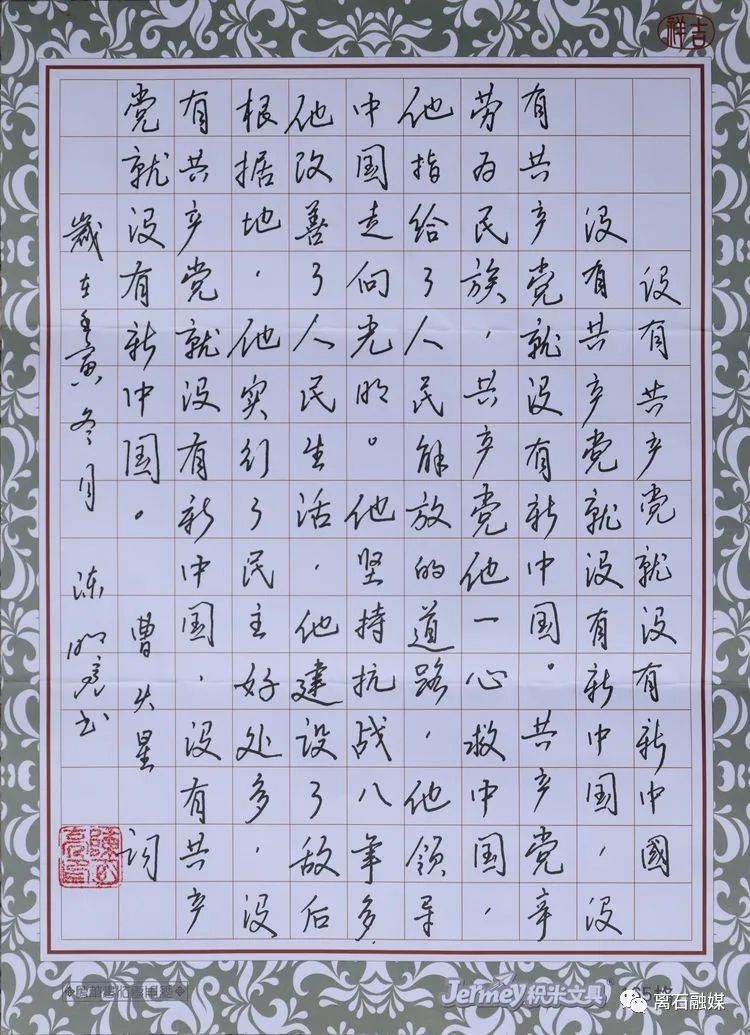 吉祥
没有共产党就没有新中國
没有共产党就没有新中国，没
有共产党就没有新中国。共产党辛
劳为民族，共产党他一心救中国，
他指给了人民解放的道路，他领导
中国走向光明。他坚持抗战八年多，
他改善了人民生活，他建设了敌后
根据地，他实行了民主好处多，没
有共产党就没有新中国，没有共产
党就没有新中国。 曹火星 词
歲在壬寅冬月 陈明亮书
Jermey积米文具®
离石融媒